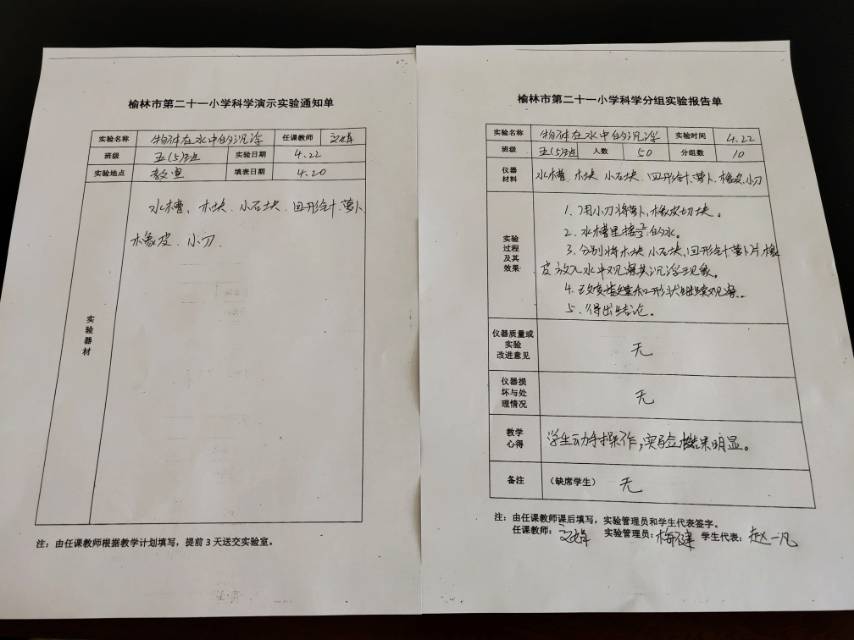 榆林市第二十一小学科学演示实验通知单
实验名称 物体在水中的沉浮 任课教师
班级 五(5)班 实验日期 4.22
实验地点 教室 填表日期 4.20
实验器材
水槽、木块、小石块、回形针、萝卜
橡皮、小刀
注：由任课教师根据教学计划填写，提前3天送交实验室。
榆林市第二十一小学科学分组实验报告单
实验名称 物体在水中的沉浮 实验时间 4.22
班级 五(5)班 人数 50 分组数 10
仪器材料 水槽、木块、小石块、回形针、萝卜、橡皮、小刀
实验过程及其效果
1、用小刀将萝卜、橡皮切块。
2、水槽里接的水。
3、分别将木块、小石块、回形针、萝卜片、橡
皮放入水中观察其沉浮现象。
4、形状继续观察。
5、得出结论。
仪器质量或实验改进意见 无
仪器损坏与处理情况 无
教学心得 学生动手操作，实验结果明显。
备注 （缺席学生） 无
注：由任课教师课后填写，实验管理员和学生代表签字。
任课教师： 实验管理员： 学生代表：赵一凡